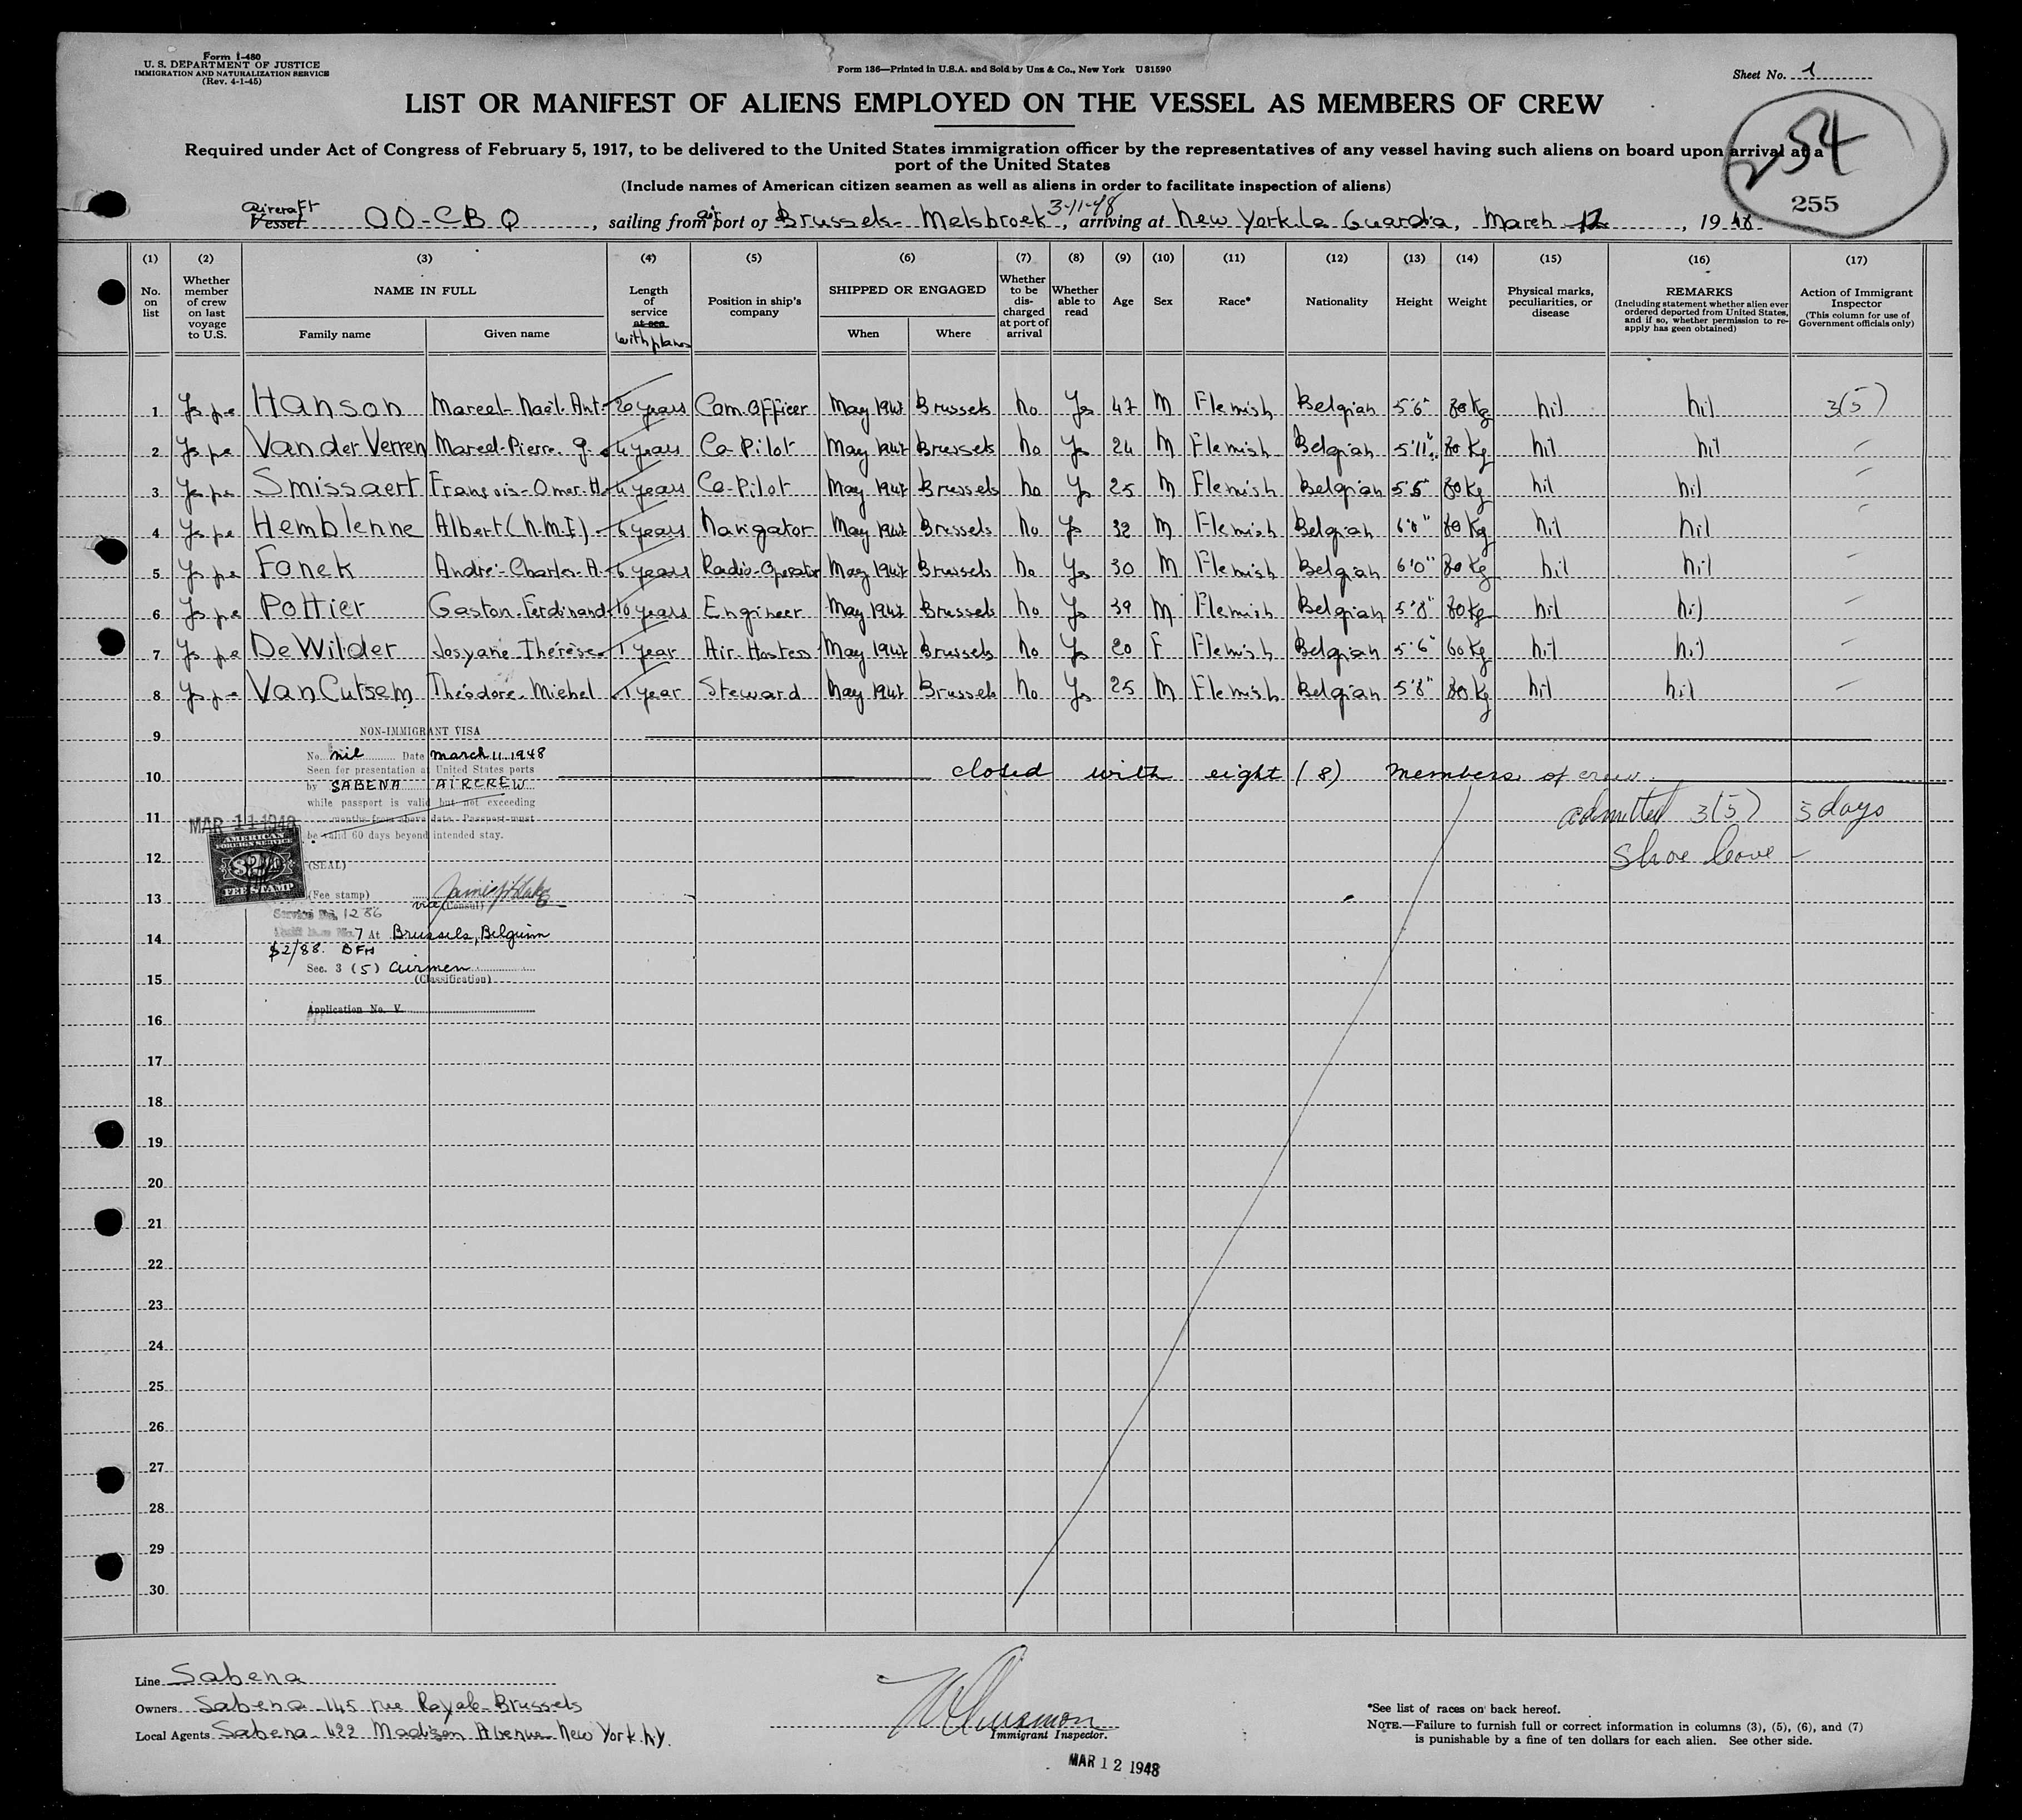 Form I-480
U. S. DEPARTMENT OF JUSTICE
IMMIGRATION AND NATURALIZATION SERVICE
(Rev. 4-1-45)
Form 136—Printed in U.S.A. and Sold by Unz & Co., New York U31590
Sheet No. 1
LIST OR MANIFEST OF ALIENS EMPLOYED ON THE VESSEL AS MEMBERS OF CREW
254
Required under Act of Congress of February 5, 1917, to be delivered to the United States immigration officer by the representatives of any vessel having such aliens on board upon arrival at a
port of the United States
(Include names of American citizen seamen as well as aliens in order to facilitate inspection of aliens)
255
Aircraft
Vessel OO-CBQ, sailing from air port of Brussels-Melsbroek 3-11-48, arriving at New York La Guardia, March 12, 1948
(1) (2) (3) (4) (5) (6) (7) (8) (9) (10) (11) (12) (13) (14) (15) (16) (17)
No. on list
Whether member of crew on last voyage to U.S.
NAME IN FULL
Family name Given name
Length of service at sea
with planes
Position in ship's company
SHIPPED OR ENGAGED
When Where
Whether to be discharged at port of arrival
Whether able to read
Age Sex Race* Nationality Height Weight
Physical marks, peculiarities, or disease
REMARKS
(Including statement whether alien ever ordered deported from United States, and if so, whether permission to re-apply has geen obtained)
Action of Immigrant Inspector
(This column for use of Government officials only)
1 Hanson Marcel-Noël-Ant. 20 years Com. Officer May 1947 Brussels No Yes 47 M Flemish Belgian 5'6" 80 Kg nil nil 3(5)
2 Van der Verren Marcel-Pierre. G. 4 years Co Pilot May 1947 Brussels No Yes 24 M Flemish Belgian 5'11" 80 Kg nil nil
3 Smissaert François-Omer-H. 4 years Co-Pilot May 1947 Brussels No Yes 25 M Flemish Belgian 5'5" 80 Kg nil nil
4 Hemblenne Albert (N.M.I) 6 years Navigator May 1947 Brussels No Yes 32 M Flemish Belgian 6'0" 80 Kg nil nil
5 Fonck André-Charles-A. 6 years Radio-Operator May 1947 Brussels No Yes 30 M Flemish Belgian 6'0" 80 Kg nil nil
6 Pottier Gaston-Ferdinand 10 years Engineer May 1947 Brussels No Yes 39 M Flemish Belgian 5'8" 80 Kg nil nil
7 De Wilder Josyane Thérèse 1 year Air-Hostess May 1947 Brussels No Yes 20 F Flemish Belgian 5'6" 60 Kg nil nil
8 Van Cutsem Théodore-Michel 1 year Steward May 1947 Brussels No Yes 25 M Flemish Belgian 5'8" 80 Kg nil nil
NON-IMMIGRANT VISA
9
No. nil Date March 11. 1948
Seen for presentation at United States ports
10 closed with eight (8) members of crew
by SABENA AIRCREW
while passport is valid but not exceeding
admitted 3(5) 5 days
11
MAR 11 1948
months from above date. Passport must
be valid 60 days beyond intended stay.
Shore leave
12
AMERICAN
FOREIGN SERVICE
$2
FEE STAMP
(SEAL)
(Fee stamp)
13
vice (Consul)
Service No. 1286
14
7 At Brussels, Belgium
$2/88. BFH
Sec. 3 (5) airmen
15
(Classification)
Application No. V
16
17
18
19
20
21
22
23
24
25
26
27
28
29
30
Line Sabena
Owners Sabena 145 rue Royale-Brussels
Local Agents Sabena 422 Madison Avenue New York. N.Y.
Immigrant Inspector.
MAR 12 1948
*See list of races on back hereof.
NOTE.—Failure to furnish full or correct information in columns (3), (5), (6), and (7)
is punishable by a fine of ten dollars for each alien. See other side.